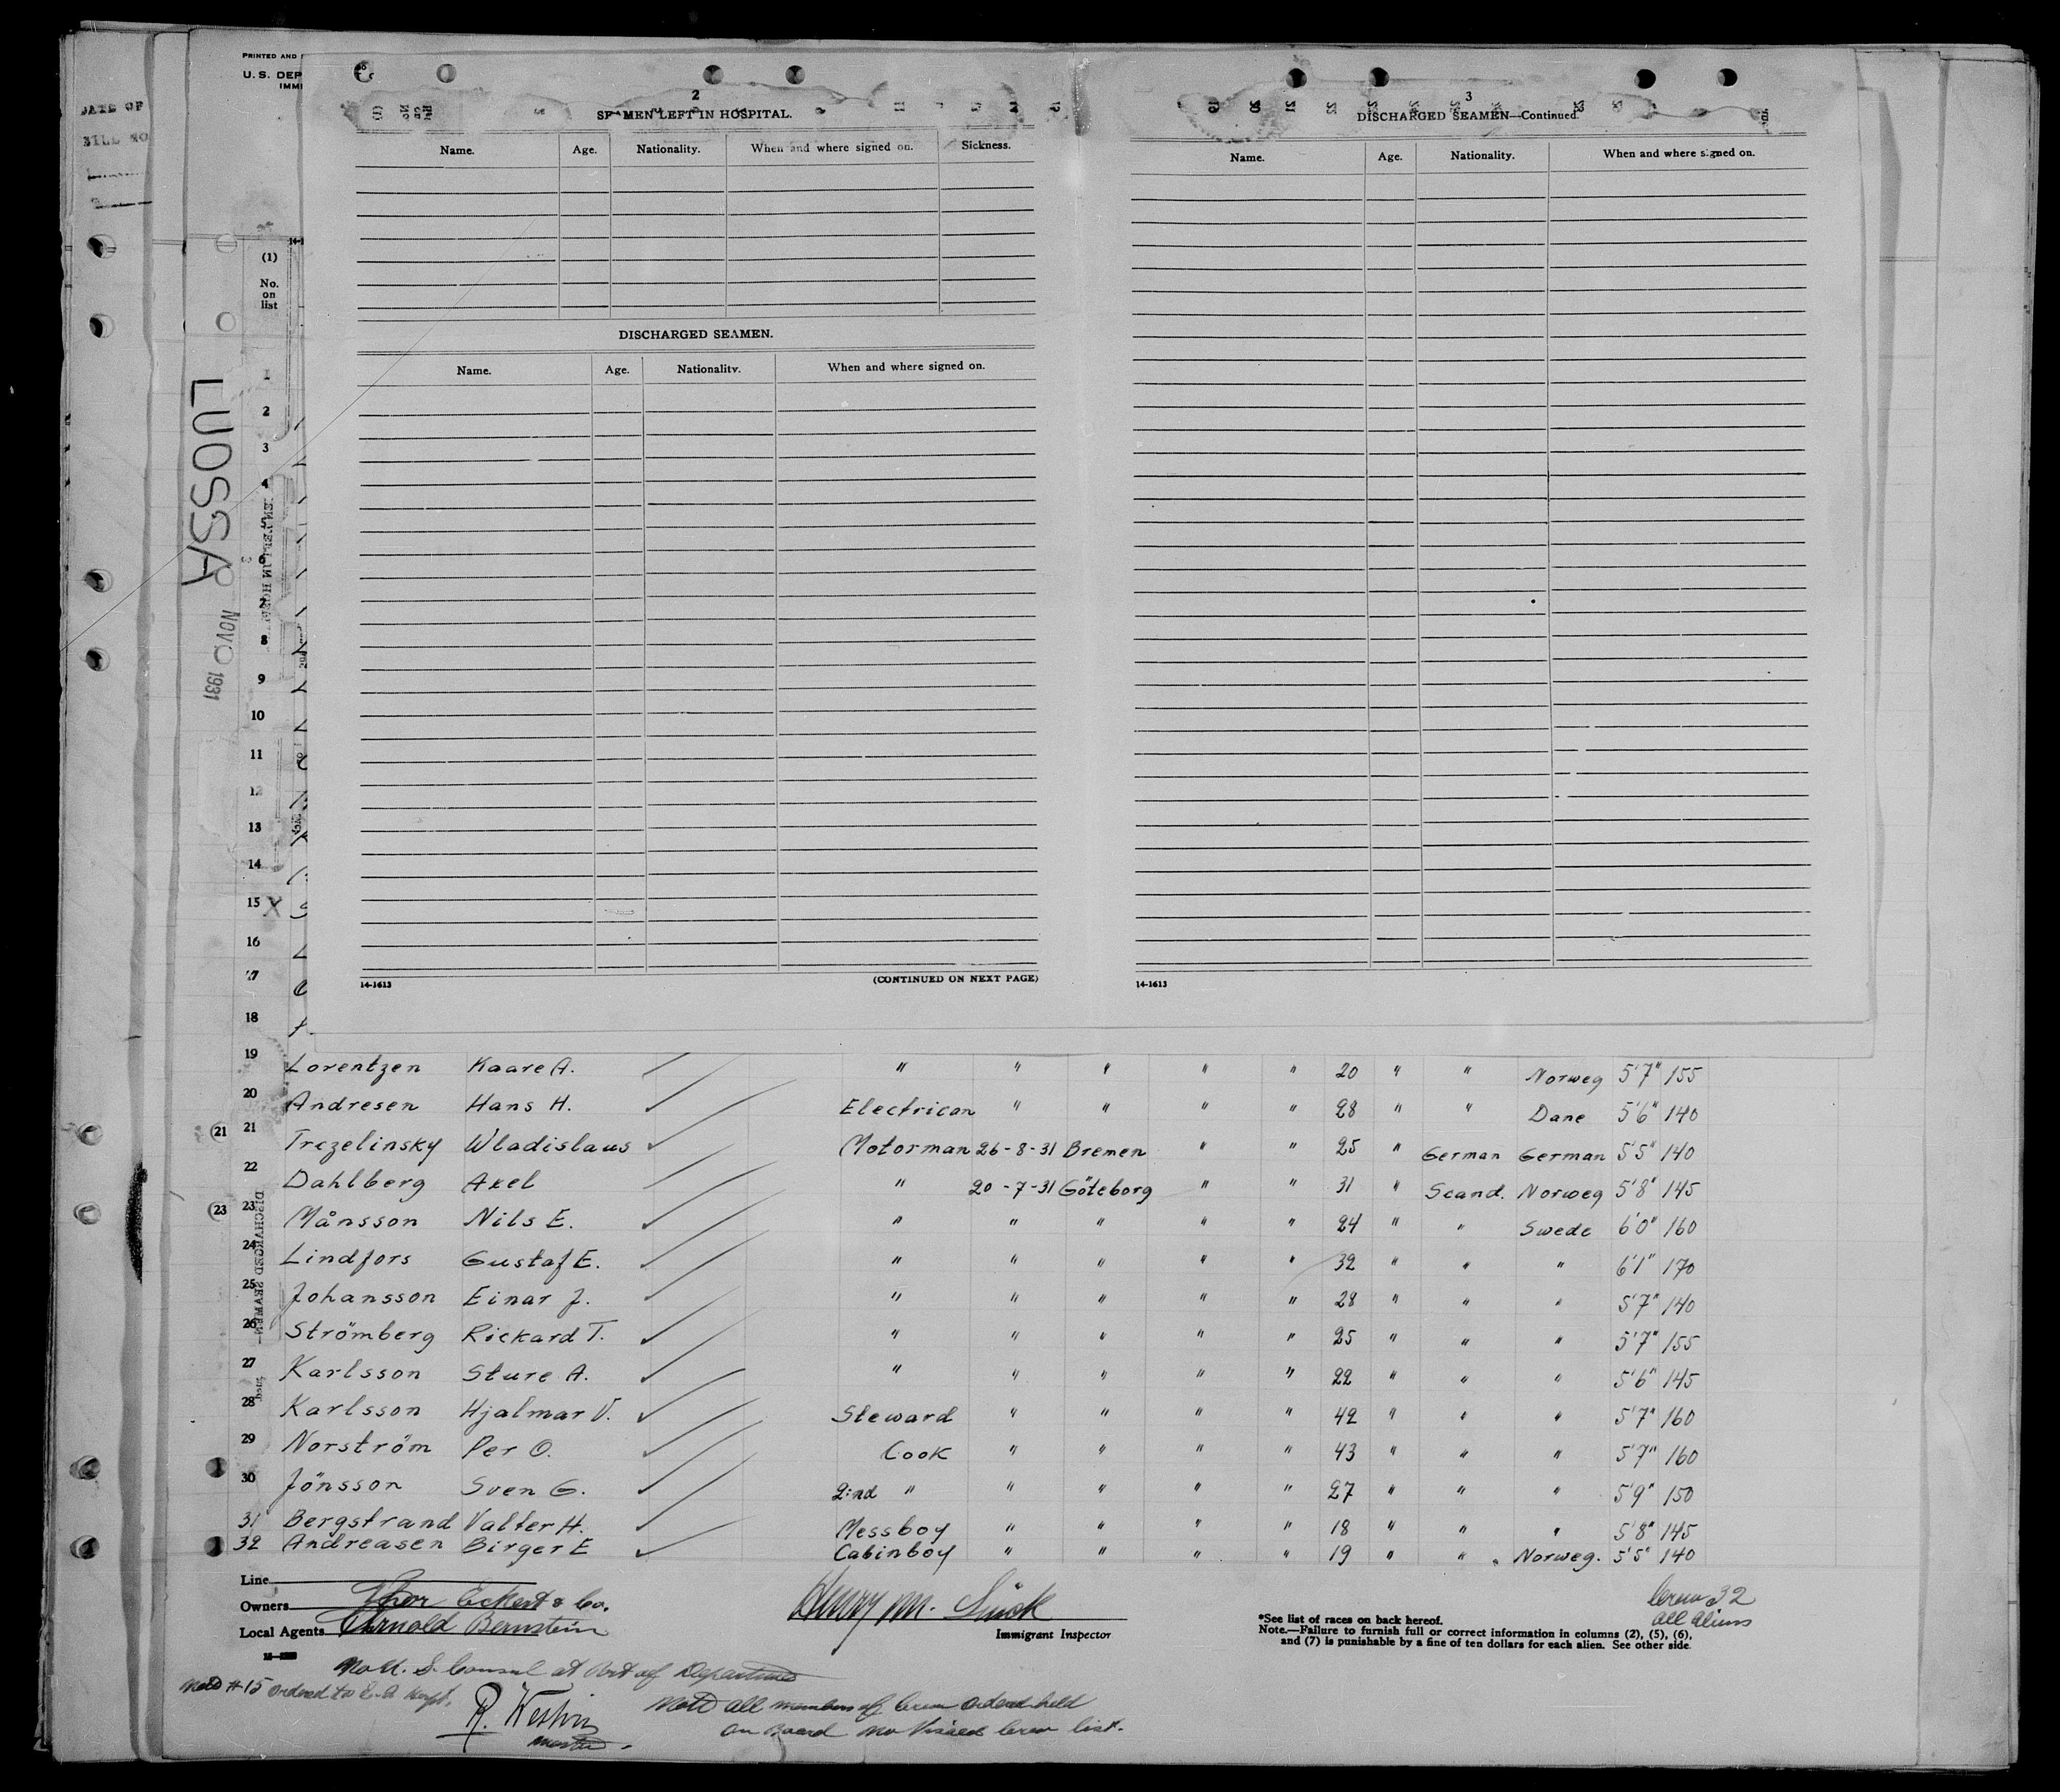 PRINTED AND
U. S. DEP
IMMI
DATE OF
(1)
No.
on
list
LUOSSA
NOV 1931
2
SEAMEN LEFT IN HOSPITAL.
Name. Age. Nationality. When and where signed on. Sickness.
DISCHARGED SEAMEN.
Name. Age. Nationality. When and where signed on.
(CONTINUED ON NEXT PAGE)
14-1613
3
DISCHARGED SEAMEN—Continued.
Name. Age. Nationality. When and where signed on.
14-1613
1
2
3
4
5
6
7
8
9
10
11
12
13
14
15 X
16
17
18
19 Lorentzen Kaare A. " " " " " 20 " " Norweg 5'7" 155
20 Andresen Hans H. Electrican " " " " 28 " " Dane 5'6" 140
(21) 21 Trezelinsky Wladislaus Motorman 26-8-31 Bremen " " 25 " German German 5'5" 140
22 Dahlberg Axel " 20-7-31 Göteborg " " 31 " Scand. Norweg 5'8" 145
(23) 23 Månsson Nils E. " " " " " 24 " " Swede 6'0" 160
24 Lindfors Gustaf E. " " " " " 32 " " " 6'1" 170
25 Johansson Einar J. " " " " " 28 " " " 5'7" 140
26 Strömberg Rickard T. " " " " " 25 " " " 5'7" 155
27 Karlsson Sture A. " " " " " 22 " " " 5'6" 145
28 Karlsson Hjalmar V. Steward " " " " 42 " " " 5'7" 160
29 Norström Per O. Cook " " " " 43 " " " 5'7" 160
30 Jönsson Sven G. 2:nd " " " " " 27 " " " 5'9" 150
31 Bergstrand Valter H. Messboy " " " " 18 " " " 5'8" 145
32 Andreasen Birger E Cabinboy " " " " 19 " " Norweg. 5'5" 140
Line
Owners Thor Eckert & Co.
Local Agents Arnold Bernstein
Henry M.
Immigrant Inspector
*See list of races on back hereof.
Note.—Failure to furnish full or correct information in columns (2), (5), (6),
and (7) is punishable by a fine of ten dollars for each alien. See other side.
Crew 32
all aliens
No U. S. Consul at Port of Departure
Note #15 ordered to
R. Westin
Master.
Note all members of Crew ordered held
on Board no Visaed Crew list.